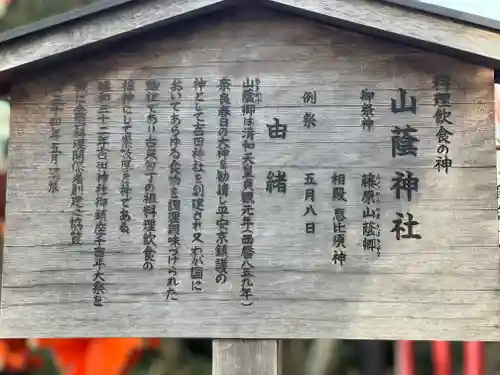 料理飲食の神
山蔭神社
御祭神 藤原山蔭卿
相殿 恵比須神
例祭 五月八日
由緒
山蔭卿は清和天皇貞観元年(西暦八五九年)
奈良春日の大神を勧請し平安京鎮護の
神として吉田神社を創建され又わが国に
おいてあらゆる食物を調理調味づけられた
始祖であり古来包丁の祖料理飲食の
祖神にして崇敬厚き神である
昭和三十二年吉田神社御鎮座千百年大祭を
期に全国料理関係者創建を協賛
三十四年五月鎮祭